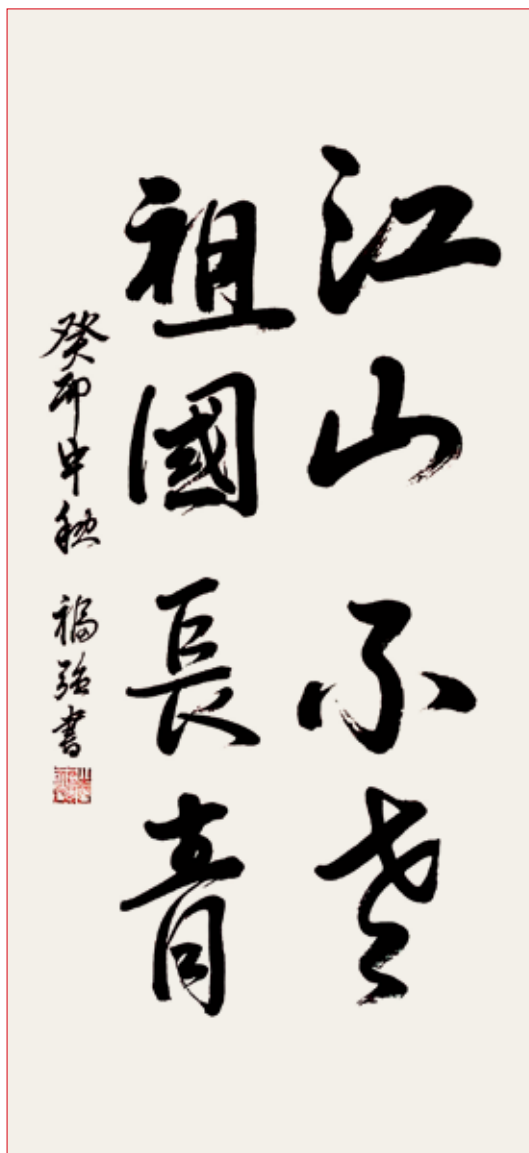 江山不老
祖國長青
癸卯中秋 福強書